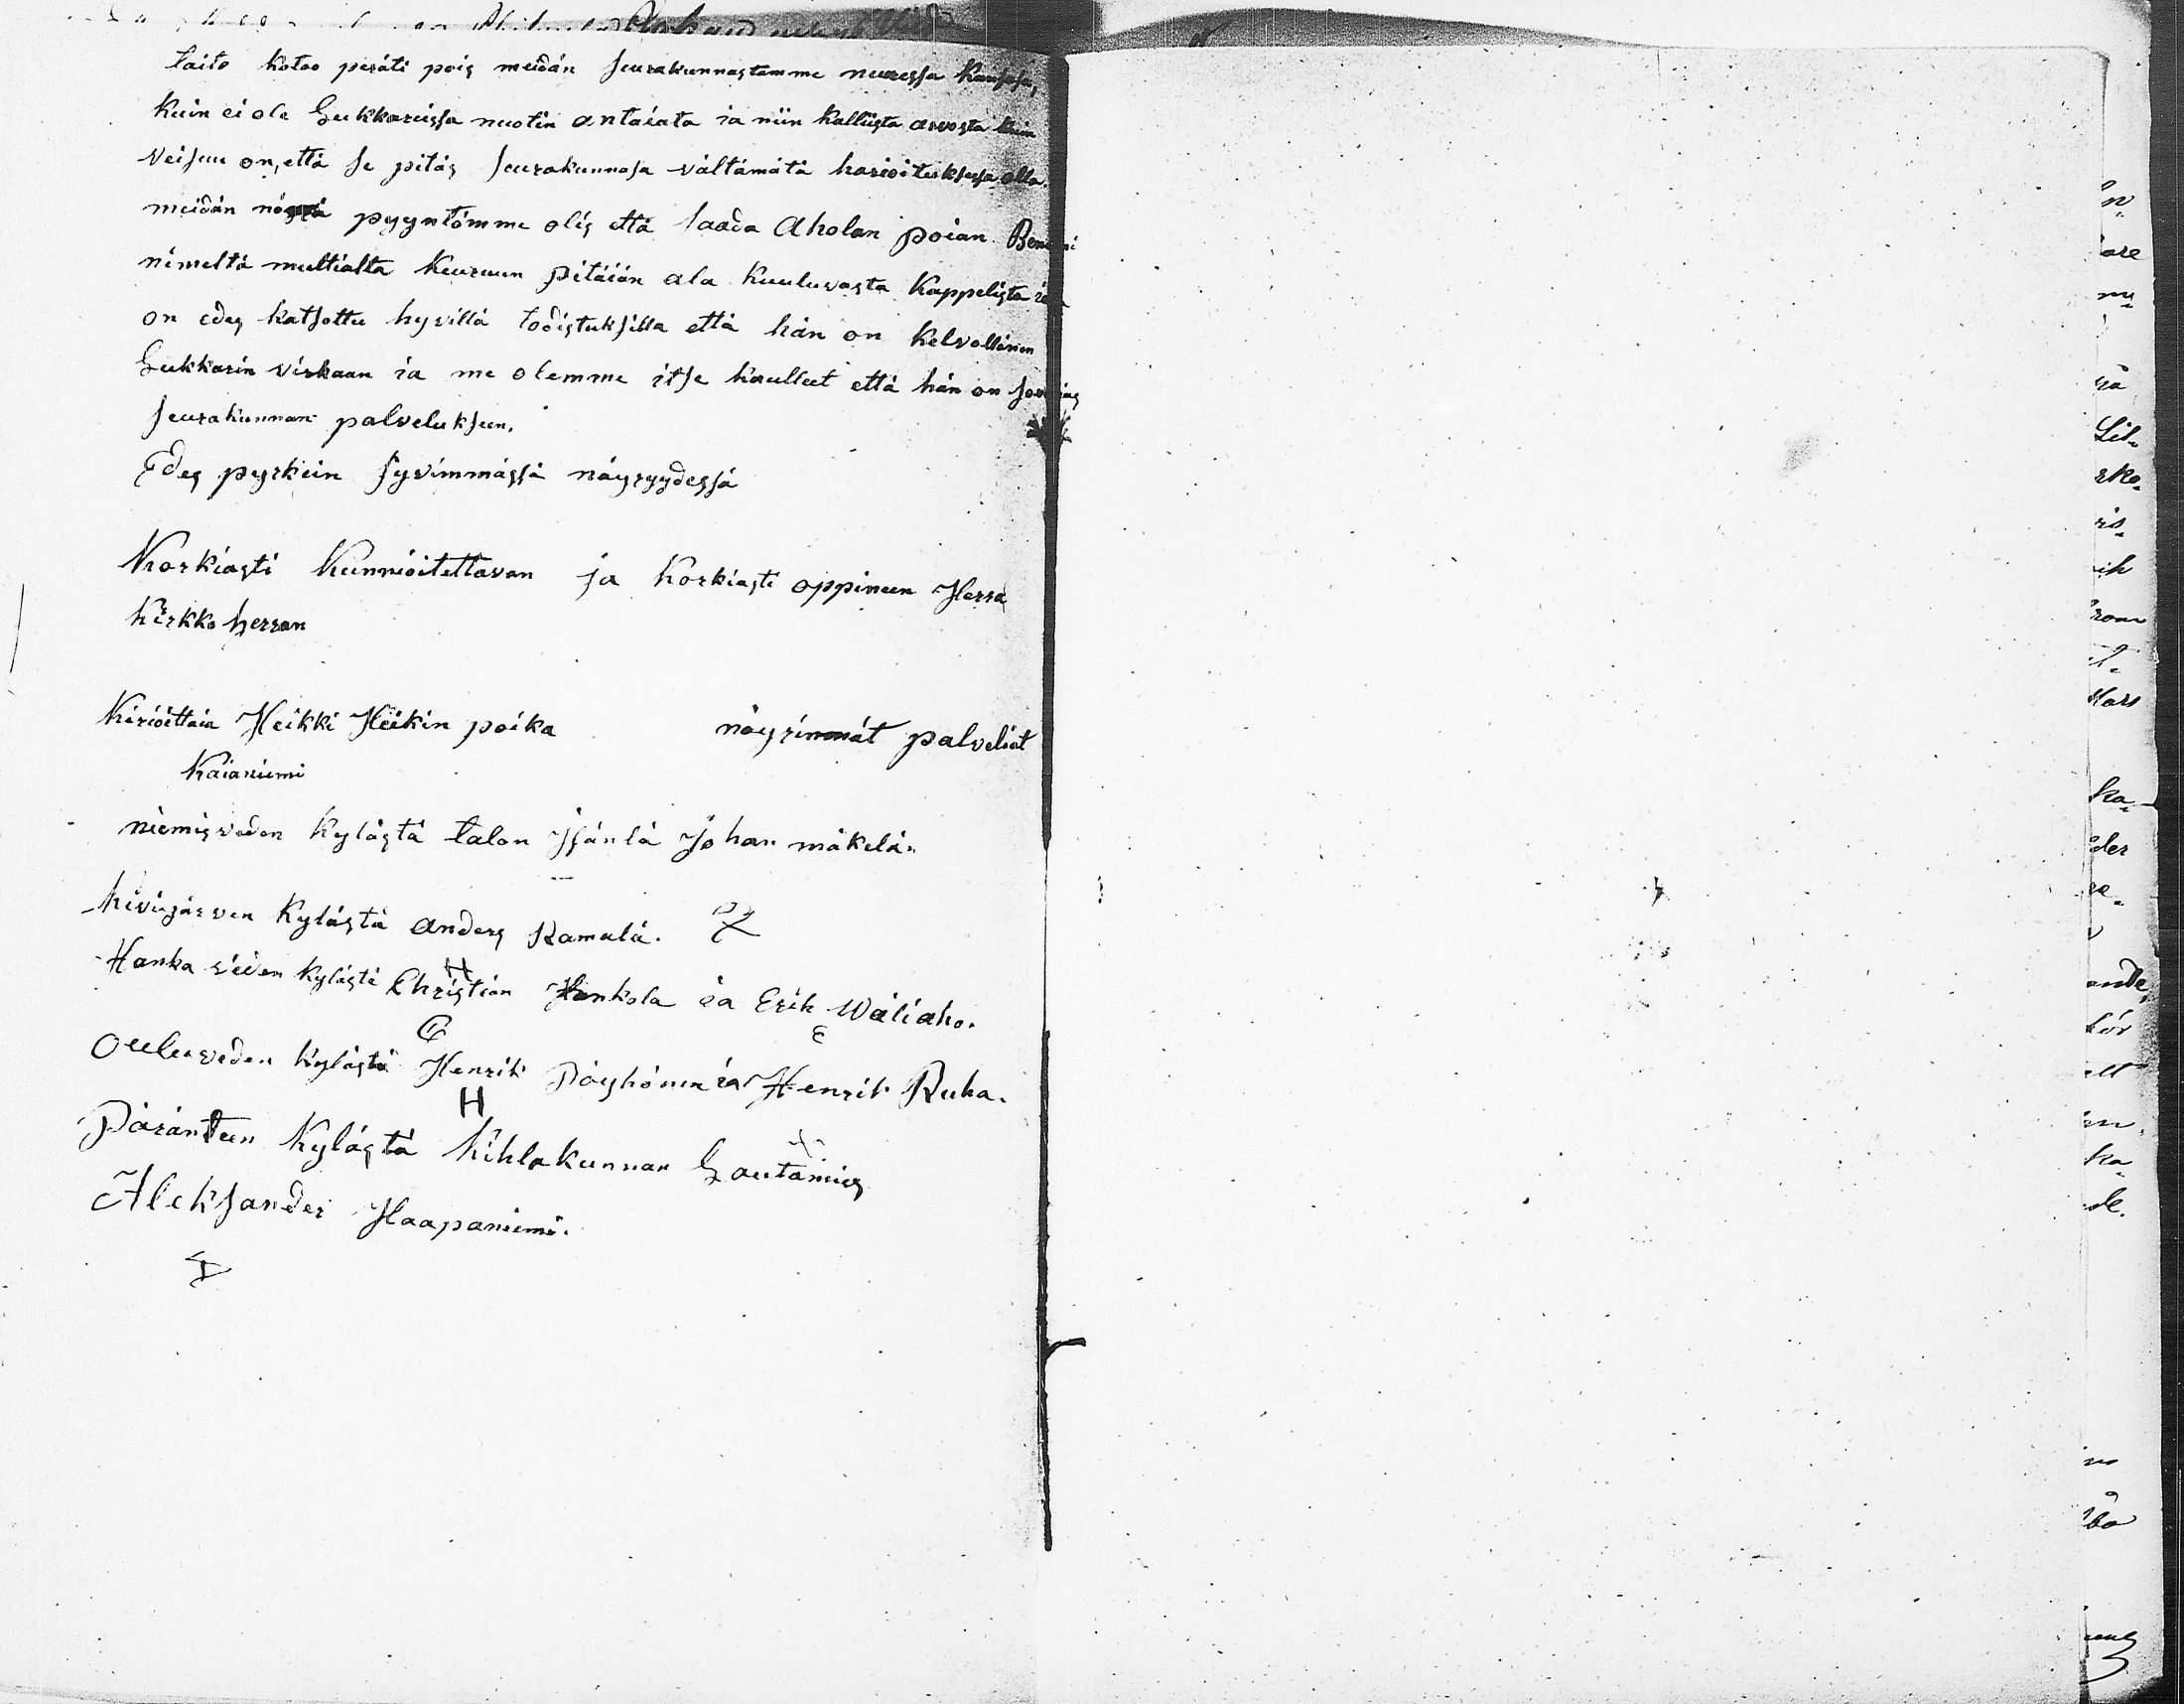 taito katoo peräti pois meidän seurakunnastamme nuoressa kansasa,
kuin ei ole Lukkareissa nuotin antaiata ia niin kalliista arvosta kuin
veisuu on, että se pitäs seurakunnasa välttämätä harioituksessa olla.
meidän nöyrä pyyntömme olis että saada Aholan poian
nimeltä multialta Keuruun pitäiän ala kuuluvasta kappelista
on edes katsottu hyvillä todistuksilla että hän on kelvollinen
Lukkarin virkaan ia me olemme itse kuulleet että hän on
seurakunnan palvelukseen.
Edes pyrkein syvimmässä nöyryydessä
Korkiasti kunnioitettavan ja korkiasti oppineen Herra
kirkko herran
kirioittaia Heikki Heikin poika nöyrimmät palveliat
Kaianiemi
niemisveden kylästä talon Isäntä Johan mäkelä.
kivijärven kylästä anders Ramula.
Hanka veden kylästä Christian Honkola ia Erik Wäliaho.
H
E
Ouluveden kylästä Henrik Pöyhönen ia Henrik Ruha.
H
Päränteen kylästä kihlakunnan Lautamies
Aleksander Haapaniemi.